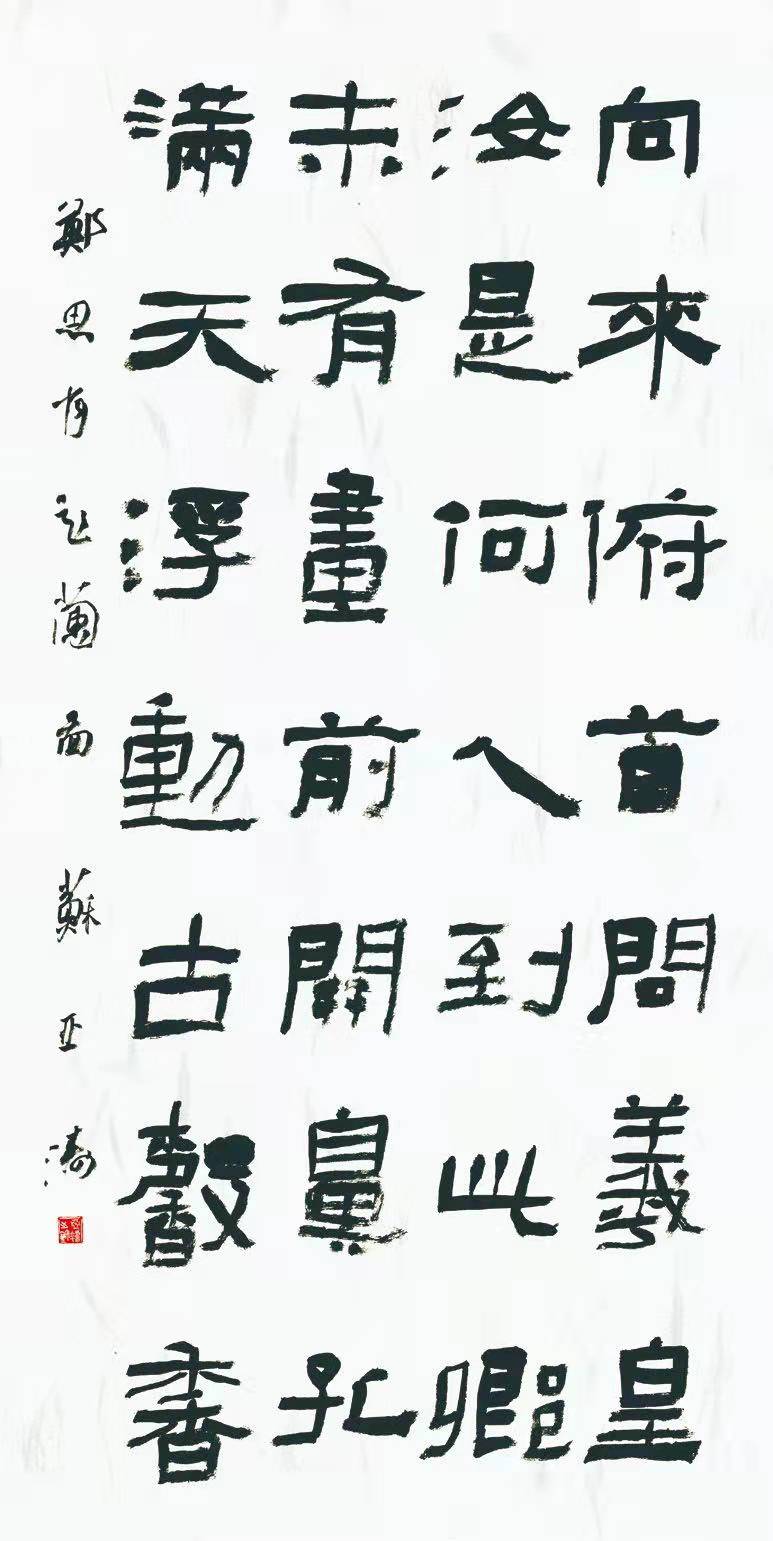 向來俯首問羲皇
汝是何人到此鄉
未有畫前開鼻孔
滿天浮動古馨香
鄭思肖題蘭 蘇亚濤